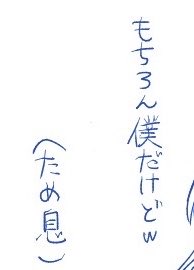 もちろん僕だけどw
(ため息)